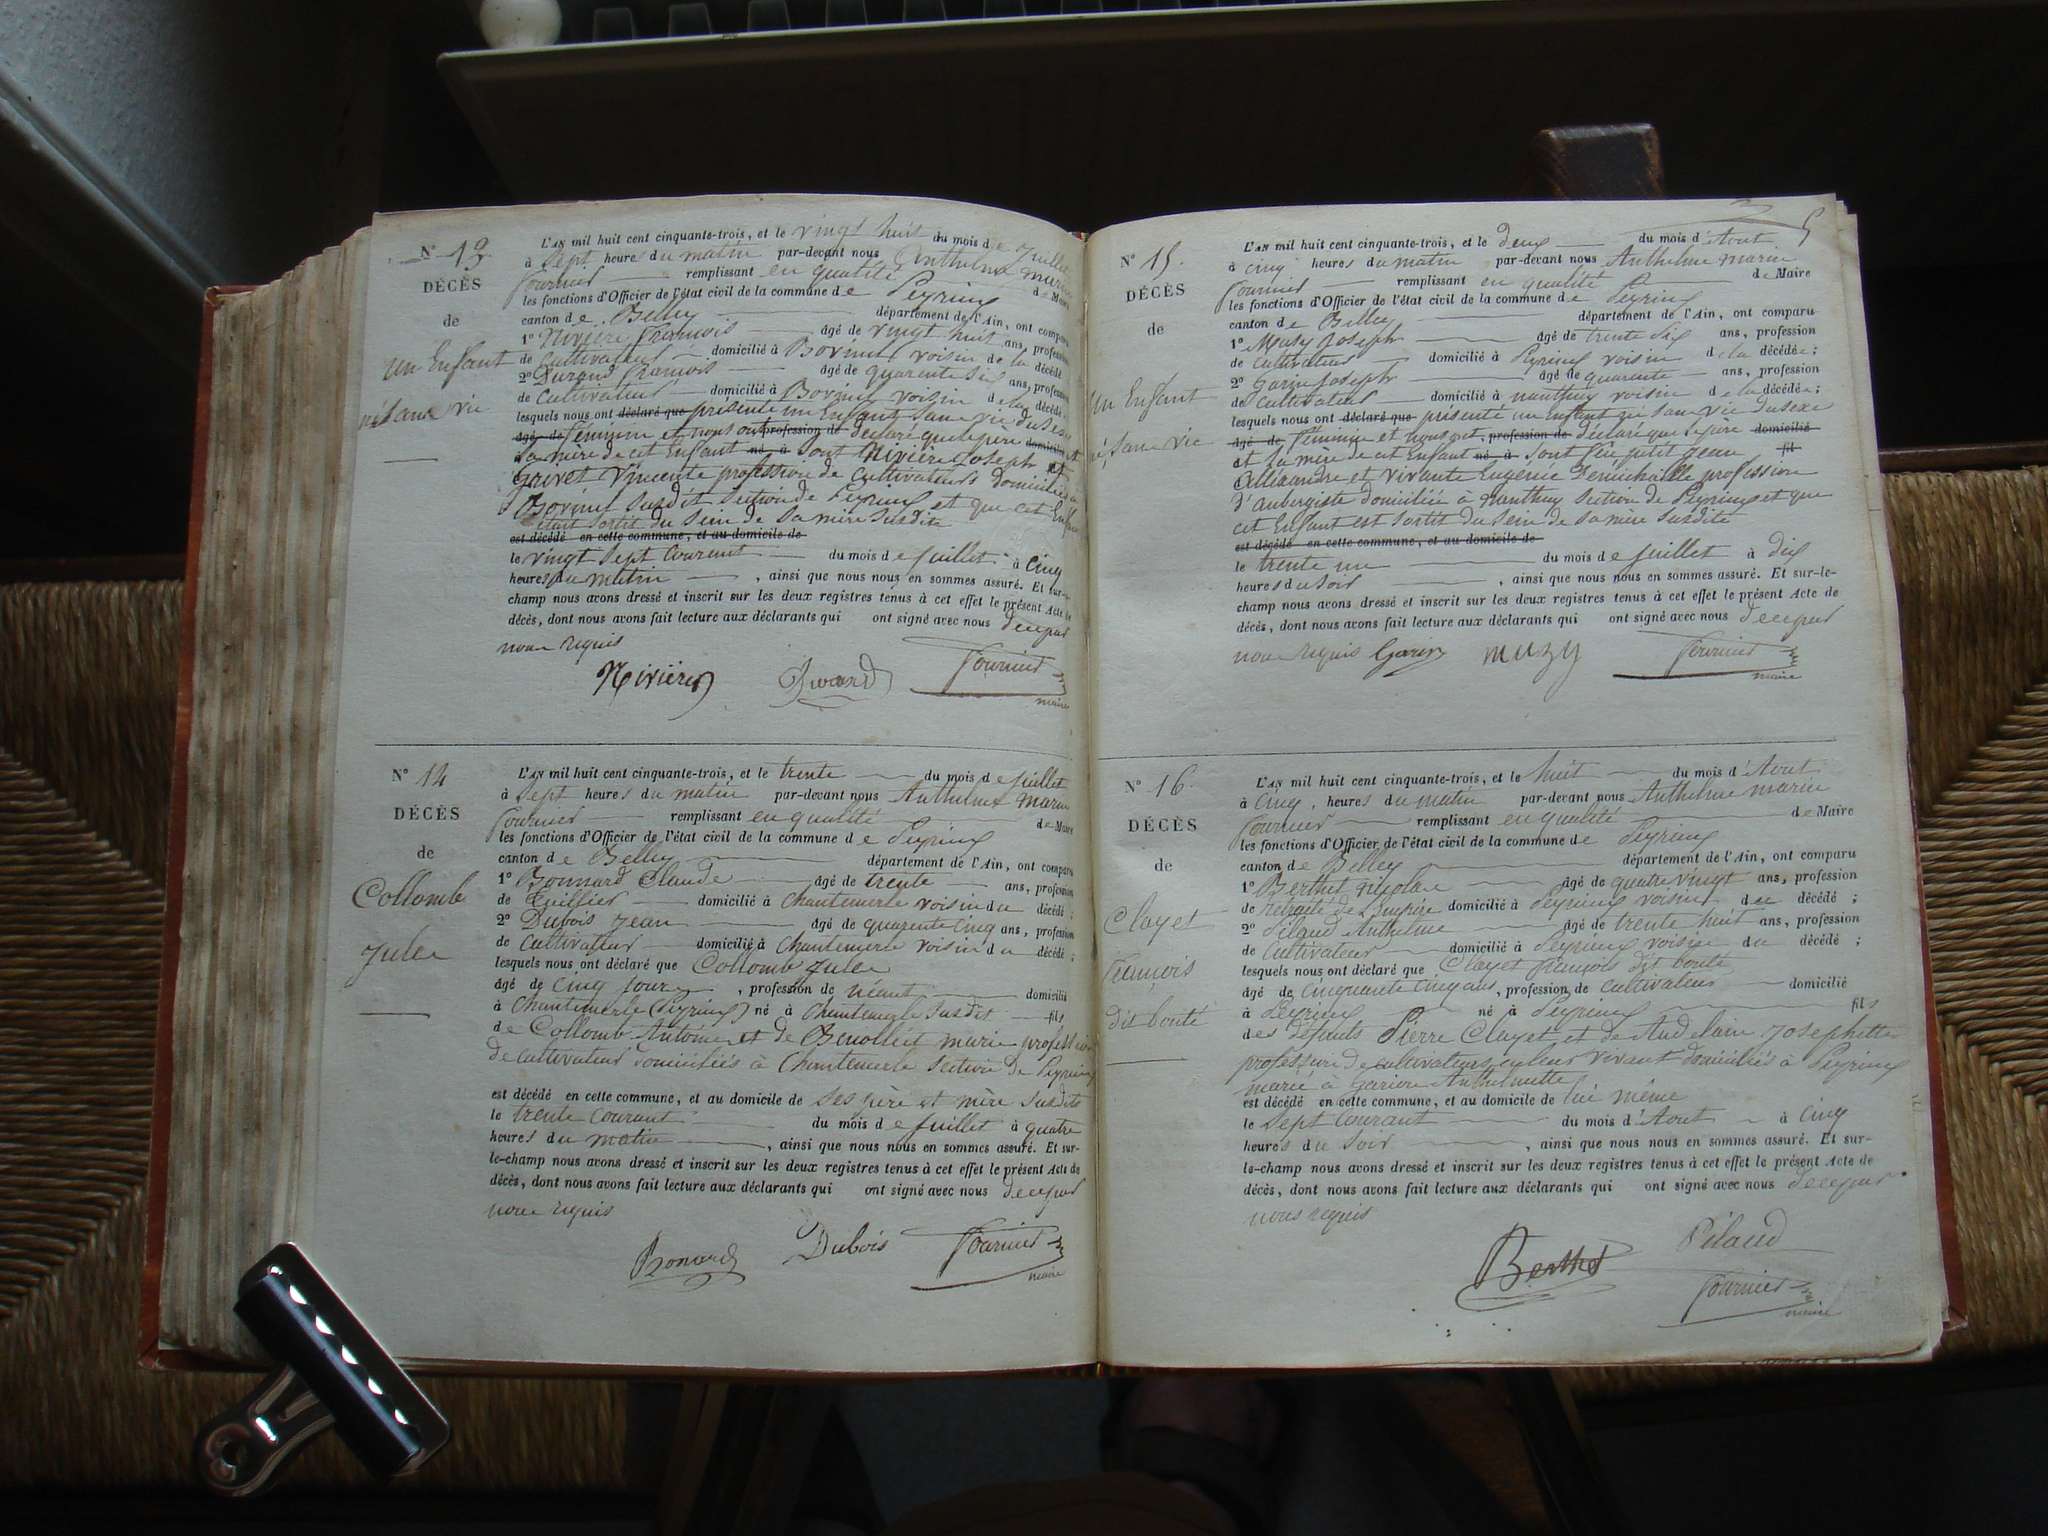 N° 13.
DÉCÈS
de
un Enfant
né sans vie
L'AN mil huit cent cinquante-trois, et le vingt huit du mois de Juillet
à sept heures du matin par-devant nous Anthelme marin
Fournier remplissant en qualité de Maire
les fonctions d'Officier de l'état civil de la commune de Peyrieu
canton de Belley département de l'Ain, ont comparu
1° Rivière François âgé de vingt huit ans, profession
de cultivateur domicilié à Bovinel voisin de la décédée
2° Durand François âgé de quarente six ans, profession
de cultivateur domicilié à Bovinel voisin de la décédée
lesquels nous ont déclaré que présenté un Enfant sans vie du sexe
agé de féminin et nous ont profession de déclaré que le père domicilié et
la mère de cet Enfant né à sont Rivière Joseph et
Grivet Vincente profession de cultivateurs domiciliés à
Bovinel susdit section de Peyrieu et que cet Enfant
était sortit du sein de sa mère susdite
est décédé en cette commune, et au domicile de
le vingt sept Courant du mois de Juillet à Cinq
heures du matin , ainsi que nous nous en sommes assuré. Et sur-le-
champ nous avons dressé et inscrit sur les deux registres tenus à cet effet le présent Acte de
décès, dont nous avons fait lecture aux déclarants qui ont signé avec nous de ce par
nous requis
Rivière Durand Fournier
maire
N° 14
DÉCÈS
de
Collomb
Jules
L'AN mil huit cent cinquante-trois, et le trente du mois de Juillet
à sept heures du matin par-devant nous Anthelme marin
Fournier remplissant en qualité de Maire
les fonctions d'Officier de l'état civil de la commune de Peyrieu
canton de Belley département de l'Ain, ont comparu
1° Bonnard Claude âgé de trente ans, profession
de Tuillier domicilié à Chantemerle voisin du décédé ;
2° Dubois Jean âgé de quarente cinq ans, profession
de cultivateur domicilié à Chantemerle voisin du décédé ;
lesquels nous ont déclaré que Collomb Jules
âgé de cinq jours , profession de néant domicilié
à Chantemerle (Peyrieu) né à Chantemerle susdit fils
de Collomb Antoine et de marie profession
de cultivateur domiciliés à Chantemerle section de Peyrieu
est décédé en cette commune, et au domicile de ses père et mère susdits
le trente courant du mois de Juillet à quatre
heures du matin , ainsi que nous nous en sommes assuré. Et sur-
le-champ nous avons dressé et inscrit sur les deux registres tenus à cet effet le présent Acte de
décès, dont nous avons fait lecture aux déclarants qui ont signé avec nous de ce par
nous requis
Bonard Dubois Fournier
maire
5
N° 15.
DÉCÈS
de
un Enfant
né sans vie
L'AN mil huit cent cinquante-trois, et le deux du mois d'Aout
à cinq heures du matin par-devant nous Anthelme marin
Fournier remplissant en qualité de Maire
les fonctions d'Officier de l'état civil de la commune de Peyrieu
canton de Belley département de l'Ain, ont comparu
1° Musy Joseph âgé de trente six ans, profession
de cultivateur domicilié à Peyrieu voisin de la décédée ;
2° Garin Joseph âgé de quarente ans, profession
de cultivateur domicilié à nanthuy voisin de la décédée ;
lesquels nous ont déclaré que présenté un Enfant né sans vie du sexe
âgé de féminin et nous ont profession de déclaré que le père domicilié
et la mère de cet Enfant né à sont feu petit Jean fil
Alexandre et vivante Eugénie profession
d'aubergiste domiciliée à nanthuy section de Peyrieu et que
cet Enfant est sortit du sein de sa mère susdite
est décédé en cette commune, et au domicile de
le trente un du mois de Juillet à dix
heures du soir , ainsi que nous nous en sommes assuré. Et sur-le-
champ nous avons dressé et inscrit sur les deux registres tenus à cet effet le présent Acte de
décès, dont nous avons fait lecture aux déclarants qui ont signé avec nous de ce par
nous requis Garin muzy Fournier
maire
N° 16.
DÉCÈS
de
Clayet
François
dit bonté
L'AN mil huit cent cinquante-trois, et le huit du mois d'Aout
à cinq heures du matin par-devant nous Anthelme marin
Fournier remplissant en qualité de Maire
les fonctions d'Officier de l'état civil de la commune de Peyrieu
canton de Belley département de l'Ain, ont comparu
1° Berthet nigolas âgé de quatre vingt ans, profession
de retraité de l'empire domicilié à Peyrieu voisin du décédé ;
2° Pilaud Anthelme âgé de trente huit ans, profession
de cultivateur domicilié à Peyrieu voisin du décédé ;
lesquels nous ont déclaré que Clayet François dit bonté
âgé de cinquante cinq ans, profession de cultivateur domicilié
à Peyrieu né à Peyrieu fils
des défunts Pierre Clayet et de Andelain Josephette
profession de cultivateurs en leur vivant domiciliés à Peyrieu
marié à Anthelmette
est décédé en cette commune, et au domicile de lui même
le sept courant du mois d'Aout à cinq
heures du soir , ainsi que nous nous en sommes assuré. Et sur-
le-champ nous avons dressé et inscrit sur les deux registres tenus à cet effet le présent Acte de
décès, dont nous avons fait lecture aux déclarants qui ont signé avec nous de ce par
nous requis
Berthet Pilaud
Fournier
maire